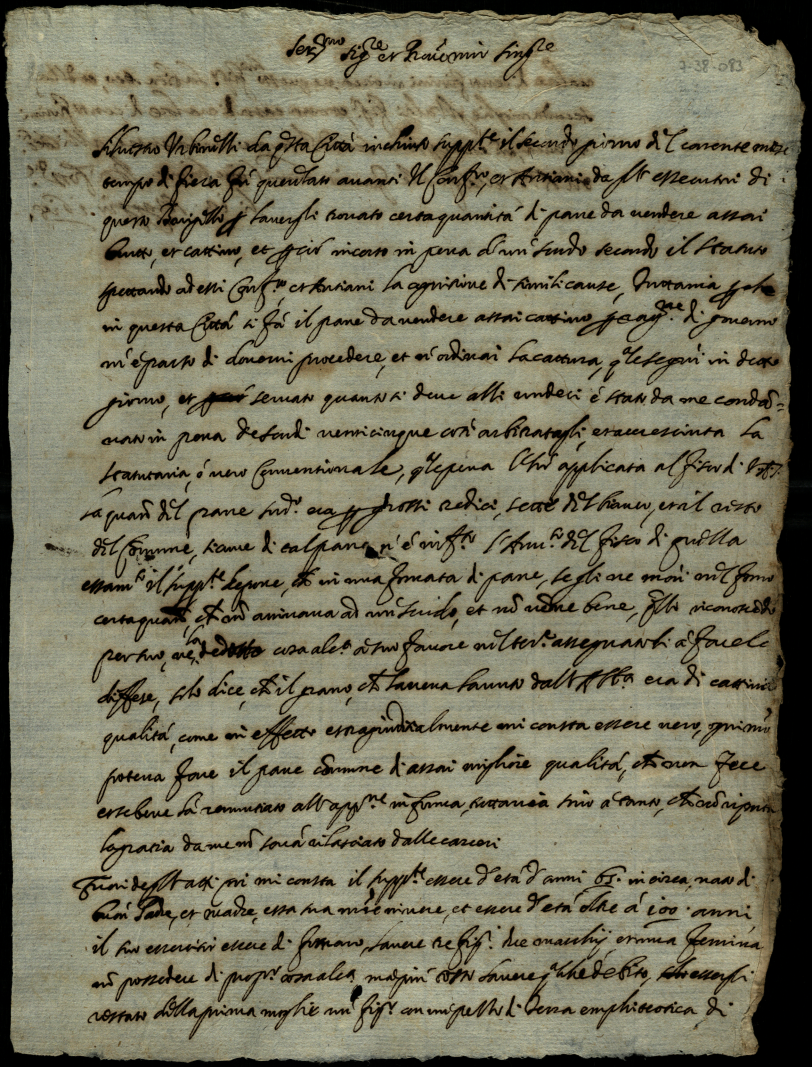 Ser.mo Sig.re et Pron mio Sing.re
7-38-083
Silvestro Urbinelli da q.sta Città inchinto supp.te il secondo giorno del corrente mese
tempo di fiera fù querelato avanti il Conf.ro, et Antiani da essecutori di
questo per haverli trovato certa quantità di pane da vendere assai
brutto, et cattivo, et p ciò incorso in pena di un scudo secondo il statuto
spettando ad essi Conf.ro, et Antiani la cognitione di simili cause, Tuttavia p che
in questa Città si fà il pane da vendere assai cattivo di governo
m'è parso di dovervi procedere, et n'ordinai la cattura, q.le seguì in detto
giorno, et servato quanto si deve alli undeci è stato da me condã=
nato in pena de scudi venticinque così arbitratagli, et accresciuta la
statutaria, ó vero Conventionale, q.le pena applicata al fisco di
la quarta del pane sud.o era p grossi redici, sette del bianco, et il resto
del Comune, del fisco di quella
essam.to il supp.te depone, ch in una fornata di pane, se gli ne morì nel forno
certa quantà, ch nõ arrivava ad un scudo, et nõ venne bene, riconoscendo
per suo, ne la cosa alc.a à suo favore nel ter.e assegnatoli à far le
diffese, solo dice, ch il grano, ch haveva havuto dall' era di cattiva
qualità, come in effetto estragiudicialmente mi consta essere vero,
poteva fare il pane cõmune di assai migliore qualità, ch non fece
et sebene hà renuntiato all' app.ne in forma, tuttavia sino à tanto, ch nõ riporta
la gratia da me nõ sarà rilasciato dalle carceri
Fuori degli atti poi mi consta il supp.te essere d'età d'anni 61. in circa, nato di
buon Padre, et madre, essa sua m.re vivere, et essere d'età oltre à 100. anni
il suo essercitio essere di fornaro, havere tre figl. due maschij et una femina
nõ possedere di propr.o cosa alc.a, ma più tosto havere q.lche debito, essergli
restato della prima moglie un figl. con un pezzo di terra emphiteotica di